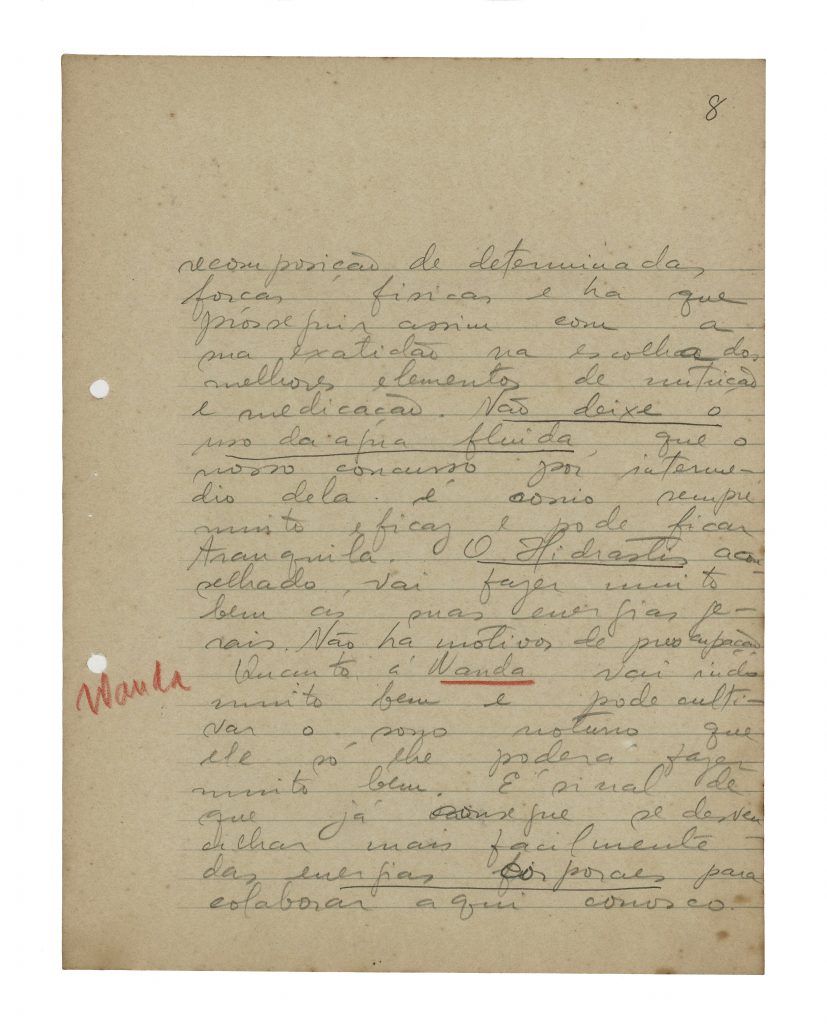 8
recomposição de determinadas
forcas fisicas e ha que
prósseguir assim com a
ma exatidão na escolha dos
melhores elementos de nutrição
e medicação. Não deixe o
uso da agua fluida que o
nosso concurso por interme-
dio dela é como sempre
muito eficaz e pode ficar
tranquila. O Hidrastis acon
selhado, vai fazer muito
bem ás suas energias ge-
rais. Não ha motivos de preocupação
Quanto á Wanda vai indo
Wanda
muito bem e pode culti-
var o sono noturno que
ele só lhe poderá fazer
muito bem. E' sinal de
que já consegue se desven
cilhar mais facilmente
das energias corporaes para
colaborar aqui conosco.